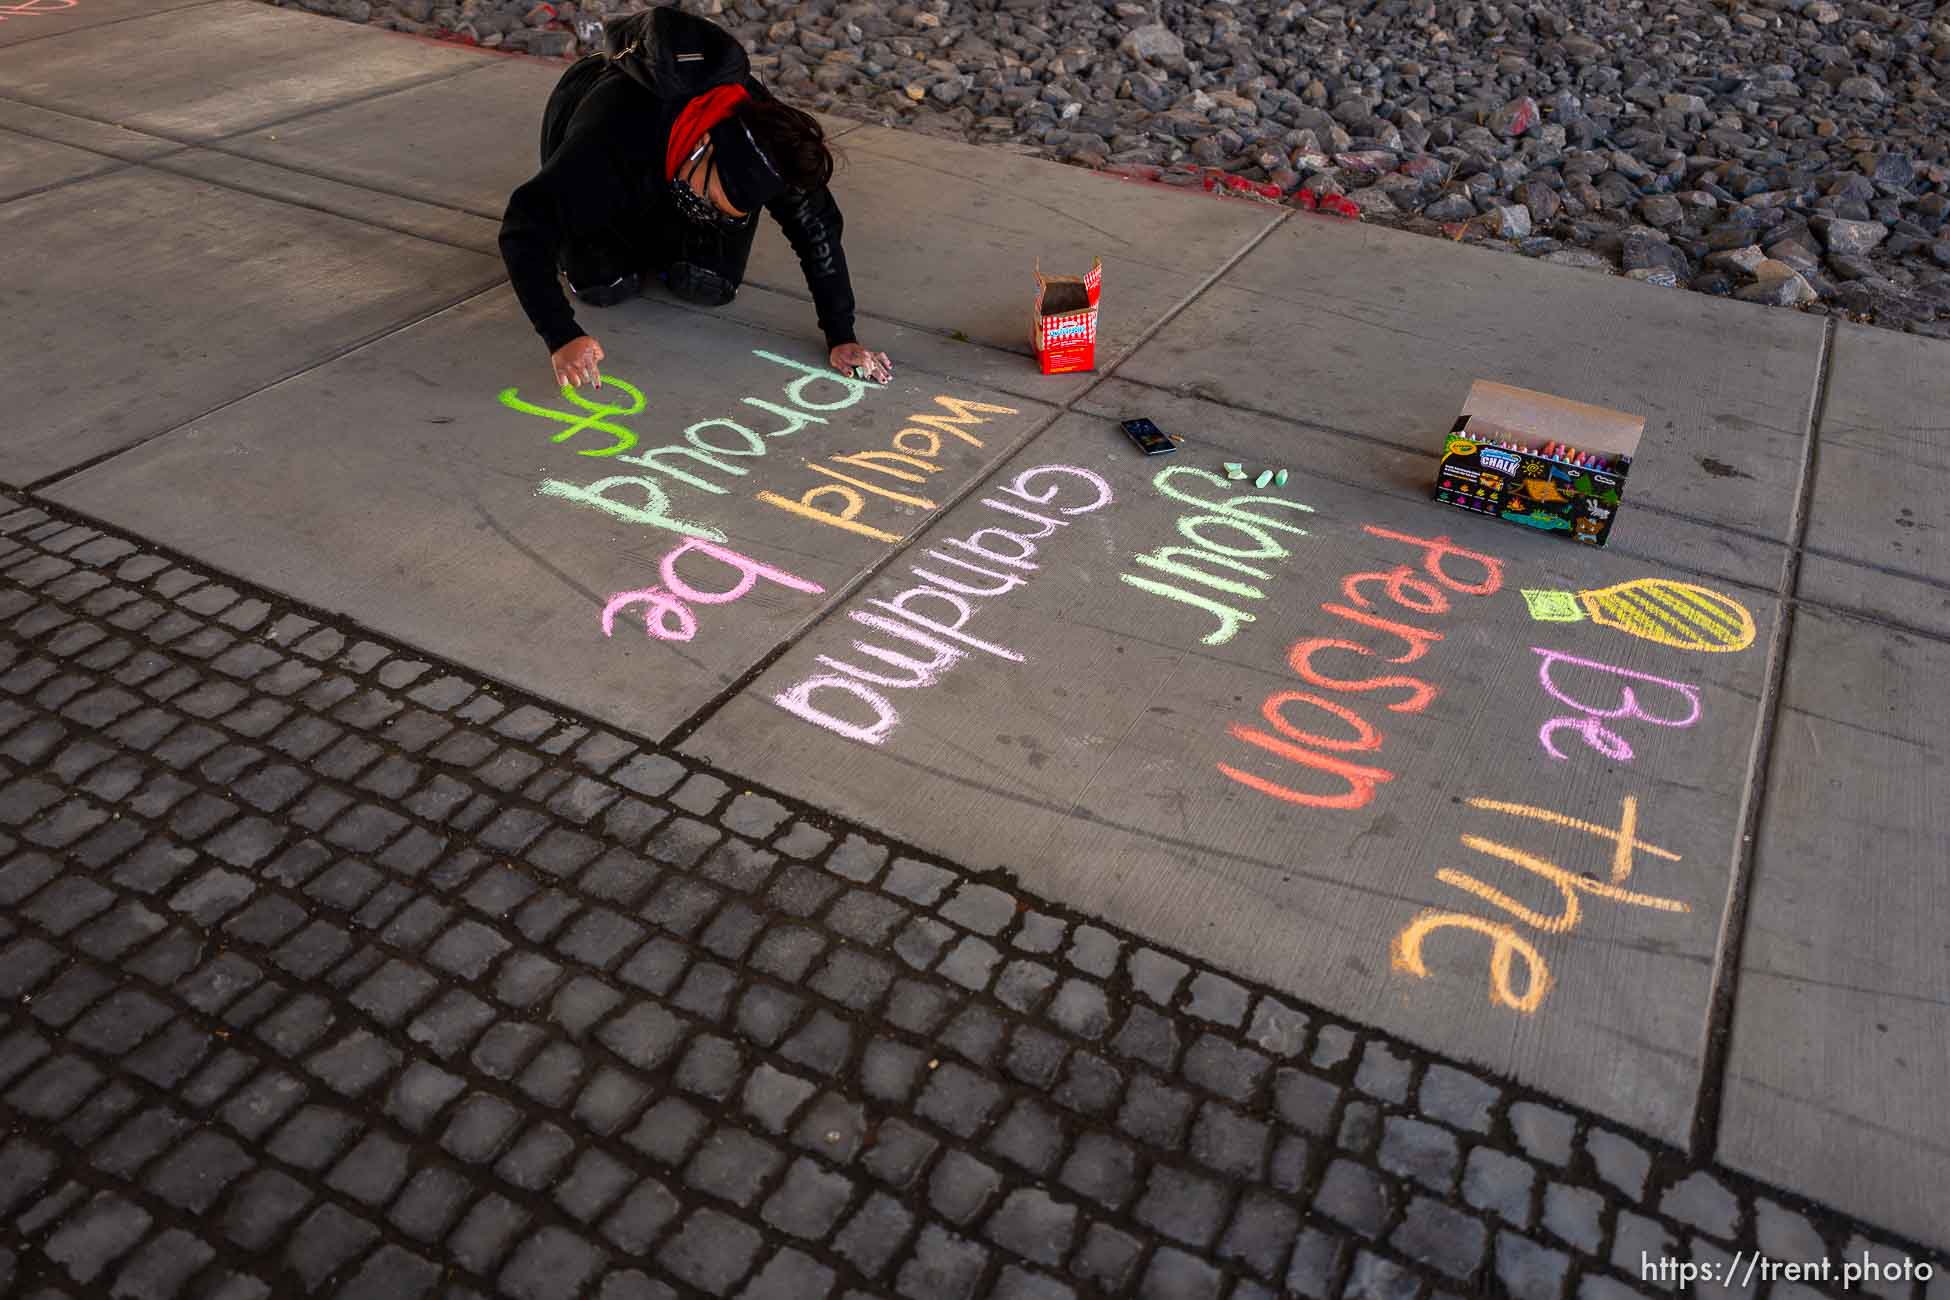 Be The
Person
Your
Grandpma
would be
proud
of
Crayola
CHALK
https://trent.photo